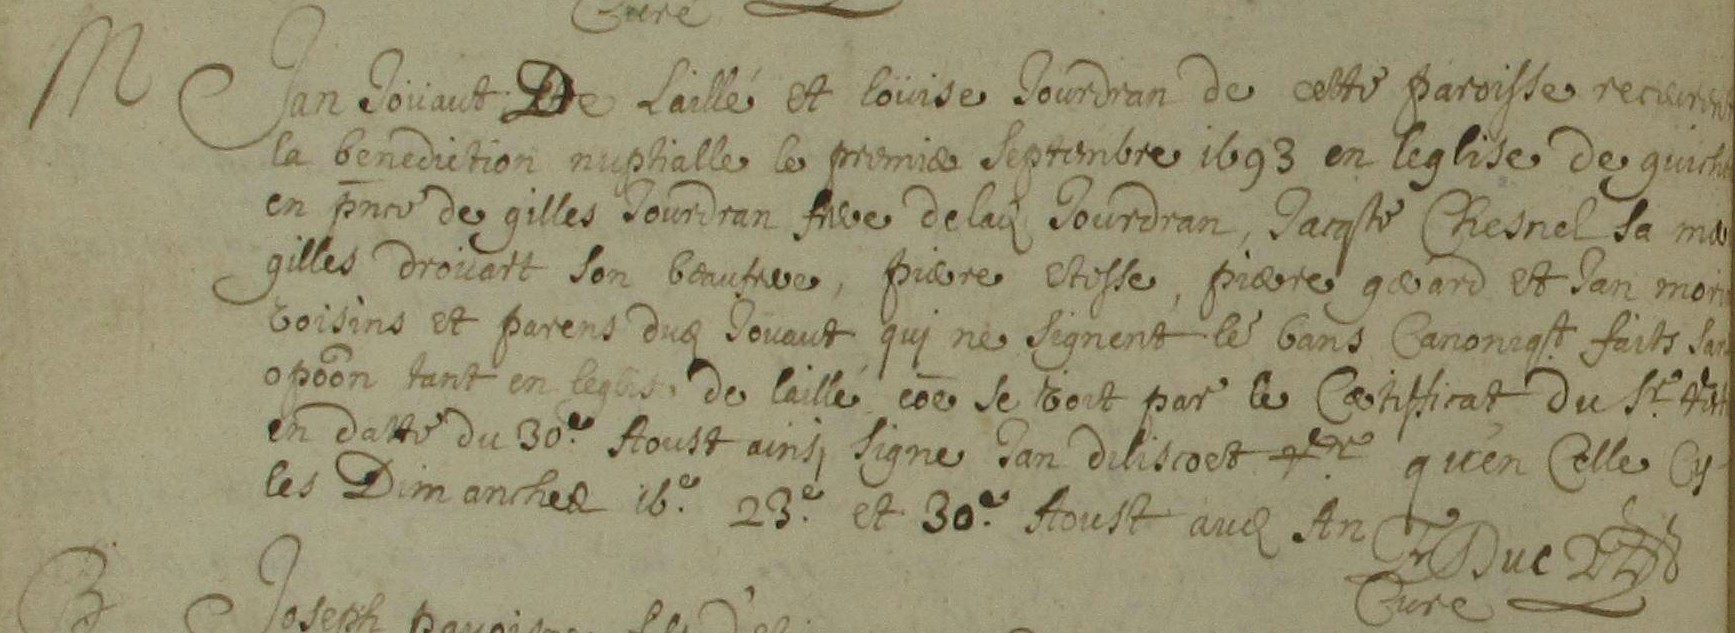 Curé
M Jan Jouaut De Laillé et Loüise Jourdran de cette paroisse recevren
la benediction nuptialle le premie Septembre 1693 en leglise de guich
en pnce de gilles Jourdran frere delad Jourdran, Jacqte Chesnel sa me
gilles drouart son beaufrere, pierre etisse, pierre gerard et Jan mori
voisins et parens dud Jouaut qui ne signent lé bans Canoniqt faits san
opoon tant en leglis. de laillé cõe se voit par le Certifficat du Sr.
en datte du 30e. Aoust ainsi signe Jan diliscoet qu'en Celle Cy
les Dimanches 16e. 23e. et 30e. Aoust aud An
Duc
Curé
B Joseph